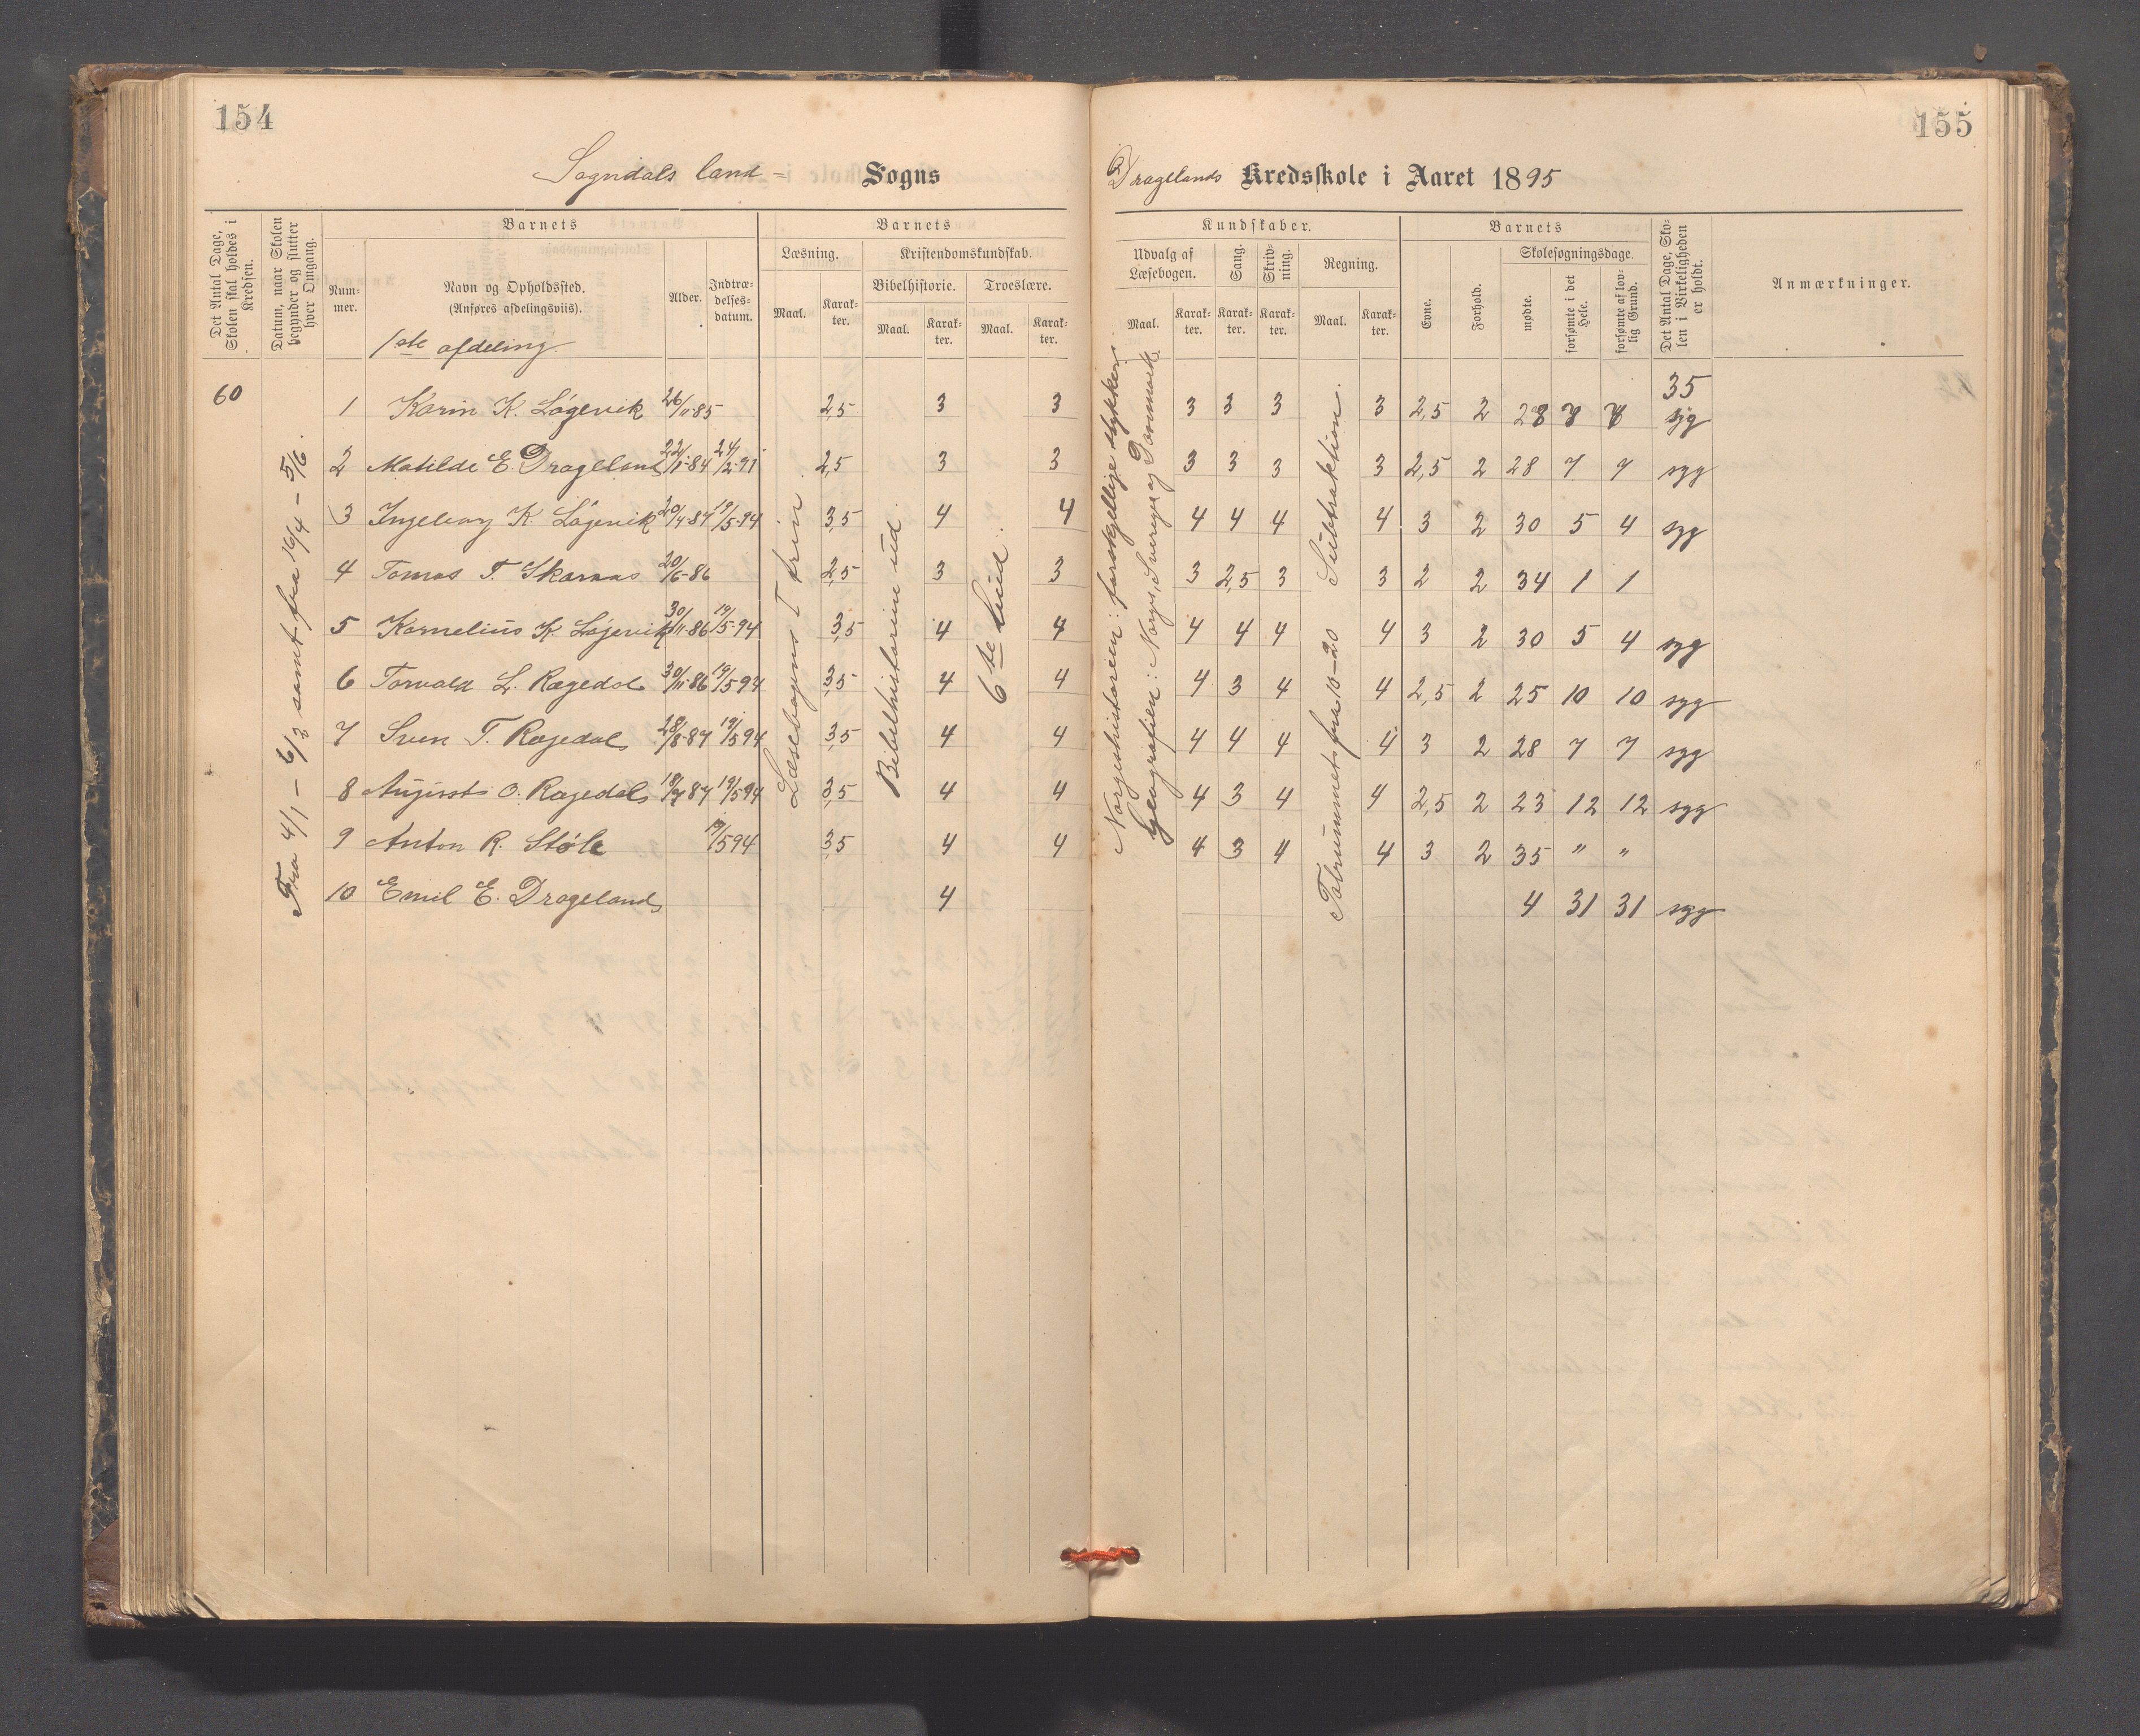 154
155
Sogndals land= Sogns
Dragelands Kredsskole i Aaret 1895
Det Antal Dage, Skolen skal holdes i Kredsen.
Datum, naar Skolen begynder og slutter hver Omgang.
Barnets
Num-
mer.
Navn og Opholdssted.
(Anføres afdelingsviis).
Alder.
Indtræ-
delses-
datum.
Barnets
Læsning.
Maal.
Karak-
ter.
Kristendomskundskab.
Bibelhistorie.
Maal.
Karak-
ter.
Troeslære.
Maal.
Karak-
ter.
Kundskaber.
Udvalg af
Læsebogen.
Maal.
Karak-
ter.
Sang.
Karak-
ter.
Skriv-
ning.
Karak-
ter.
Regning.
Maal.
Karak-
ter.
Barnets
Evne.
Forhold.
Skolesøgningsdage.
mødte.
forsømte i det
Hele.
forsømte af lov-
lig Grund.
Det Antal Dage, Sko-
len i Virkeligheden
er holdt.
Anmærkninger.
1ste afdeling.
60
Fra 4/1 – 6/3 samt fra 16/4 – 5/6.
Læsebogens I trin.
Bibelhistorien ud.
6te bud.
Norgeshistorien: forskjellige stykker.
Geografien: Norge, Sverige og Danmark
Talrummet fra 10–20 Subtraktion.
35
1 Karin K. Løgevik 26/11 85 2,5 3 3 3 3 3 3 2,5 2 28 7 7 syg
2 Matilde E. Drageland 22/1-84 24/2-91 2,5 3 3 3 3 3 3 2,5 2 28 7 7 syg
3 Ingeborg K. Løgevik 20/4-84 19/5-94 3,5 4 4 4 4 4 4 3 2 30 5 4 syg
4 Tomas T. Skaraas 20/6-86 2,5 3 3 3 2,5 3 3 2 2 34 1 1
5 Kornelius K. Løgevik 30/11-86 19/5-94 3,5 4 4 4 4 4 4 3 2 30 5 4 syg
6 Torvald L. Rægedal 30/11-86 19/5 94 3,5 4 4 4 3 4 4 2,5 2 25 10 10 syg
7 Sven T. Rægedal 28/8-87 19/5 94 3,5 4 4 4 4 4 4 3 2 28 7 7 syg
8 August O. Rægedal 18/7 87 19/5 94 3,5 4 4 4 3 4 4 2,5 2 23 12 12 syg
9 Anton R. Støle 19/5 94 3,5 4 4 4 3 4 4 3 2 35 " "
10 Emil E. Drageland 4 4 31 31 syg